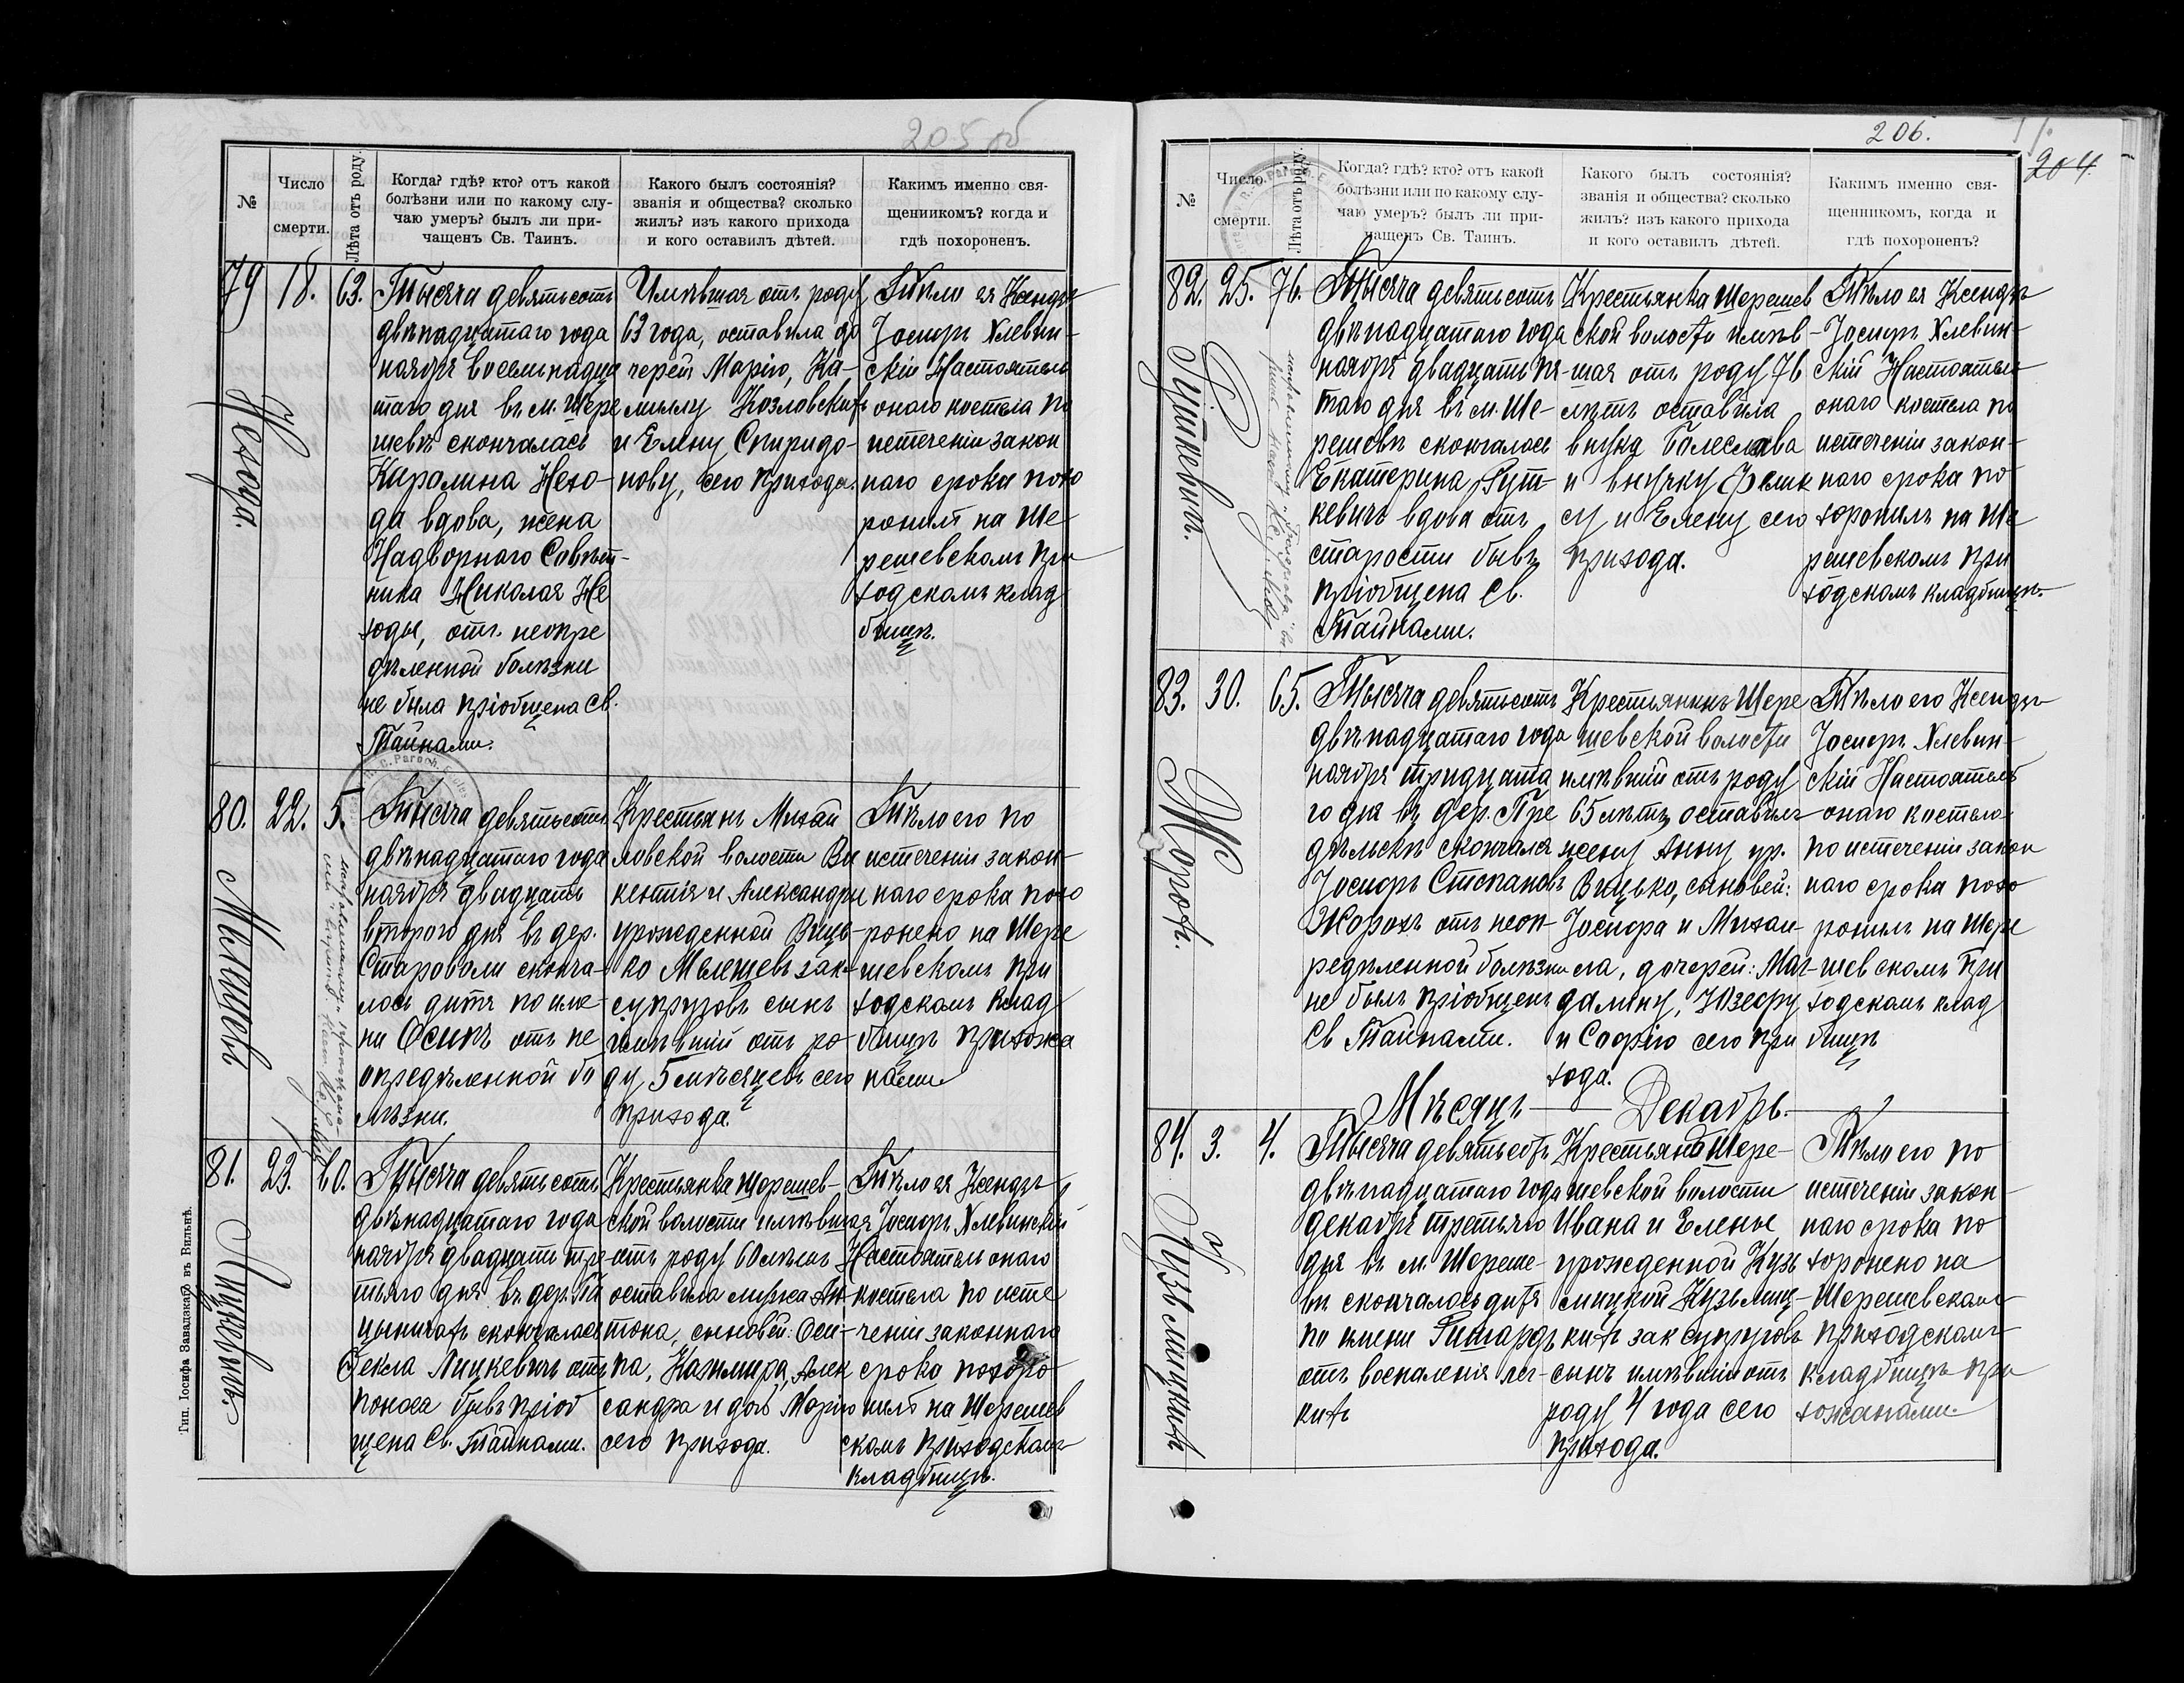 205 об
№
Число
смерти.
Лѣта отъ роду.
Когда? гдѣ? кто? отъ какой
болѣзни или по какому слу-
чаю умеръ? былъ ли при-
чащенъ Св. Таинъ.
Какого былъ состоянія?
званія и общества? сколько
жилъ? изъ какого прихода
и кого оставилъ дѣтей.
Какимъ именно свя-
щенникомъ? когда и
гдѣ похороненъ.
79
18.
63.
Нехода.
Тысяча девятьсотъ
двѣнадцатаго года
ноября восемнадца
таго дня въ м. Шере
шевѣ скончалась
Каролина Нехо-
да вдова, жена
Надворнаго Совѣт-
ника Николая Не
ходы, отъ неопре
дѣленной болѣзни
не была пріобщена Св.
Тайнами.
Имѣвшая отъ роду
63 года, оставила до
черей Марію, Ка-
милу Козловскихъ
и Елену Спиридо-
нову, сего прихода.
Тѣло ея Ксендзъ
Іосифъ Хлевин-
скій Настоятель
онаго костела по
истеченіи закон
наго срока похо
ронилъ на Ше-
решевскомъ при
ходскомъ клад
бищѣ.
80.
22.
5.
Тысяча девятьсотъ
двѣнадцатаго года
ноября двадцать
второго дня въ дер.
Староволи сконча-
лось дитя по име-
ни Осипъ отъ не
опредѣленной бо
лѣзни.
Крестьянъ Михай
ловской волости Ви
кентія и Александры
урожденной Вицъ-
ко Мелешевъ зак.
супруговъ сынъ
имѣвшій отъ ро-
ду 5 мѣсяцевъ сего
прихода.
Тѣло его по
истеченіи закон-
наго срока похо
ронено на Шере
шевскомъ при
ходскомъ клад
бищѣ прихожа
нами
81.
23.
60.
Лицкевичъ.
Тысяча девятьсотъ
двѣнадцатаго года
ноября двадцать тре
тьяго дня въ дер.
скончалась
Фекла Лицкевичъ отъ
поноса бывъ пріоб
щена Св. Тайнами.
Крестьянка Шерешев-
ской волости имѣвшая
отъ роду 60 лѣтъ
оставила мужа Ан-
тона, сыновей: Оси-
па, Казимира, Алек
сандра и дочь Марію
сего прихода.
Тѣло ея Ксендзъ
Іосифъ Хлевинскій
Настоятель онаго
костела по исте
ченіи законнаго
срока похоро
нилъ на Шерешев
скомъ приходскомъ
кладбищѣ.
Тип. Іосифа Завадзкаго въ Вильнѣ.
206.
204
№
Число
смерти.
Лѣта отъ роду.
Когда? гдѣ? кто? отъ какой
болѣзни или по какому слу-
чаю умеръ? былъ ли при-
чащенъ Св. Таинъ.
Какого былъ состоянія?
званія и общества? сколько
жилъ? изъ какого прихода
и кого оставилъ дѣтей.
Какимъ именно свя-
щенникомъ, когда и
гдѣ похороненъ?
82.
25.
76.
Рушкевичъ.
Тысяча девятьсотъ
двѣнадцатаго года
ноября двадцать пя-
таго дня въ м. Ше-
решевѣ скончалась
Екатерина Руш-
кевичъ вдова отъ
старости бывъ
пріобщена Св.
Тайнами.
Крестьянка Шерешев
ской волости имѣв-
шая отъ роду 76
лѣтъ оставила
внука Болеслава
и внучку Фелик
су и Елену сего
прихода.
Тѣло ея Ксендзъ
Іосифъ Хлевин-
скій Настоятель
онаго костела по
истеченіи закон-
наго срока по
хоронилъ на Ше
решевскомъ при
ходскомъ кладбищѣ.
83.
30.
65.
Жорохъ.
Тысяча девятьсотъ
двѣнадцатаго года
ноября тридцата
го дня въ дер. Пре
дѣльскѣ скончался
Іосифъ Степановъ
Жорохъ отъ неоп-
редѣленной болѣзни
не былъ пріобщенъ
Св Тайнами.
Крестьянинъ Шере
шевской волости
имѣвшій отъ роду
65 лѣтъ оставилъ
жену Анну ур.
Вицько, сыновей:
Іосифа и Михаи-
ла, дочерей: Маг-
далину, Юзефу
и Софію сего при
хода.
Тѣло его Ксендзъ
Іосифъ Хлевин-
скій Настоятель
онаго костела
по истеченіи закон
наго срока похо
ронилъ на Шере
шевскомъ при
ходскомъ клад
бищѣ
Мѣсяцъ Декабрь.
84.
3.
4.
Кузьмицкій
Тысяча девятьсотъ
двѣнадцатаго года
декабря третьяго
дня въ м. Шереше-
вѣ скончалось дитя
по имени Ришардъ
отъ воспаленія лег-
кихъ
Крестьянъ Шере-
шевской волости
Ивана и Елены
урожденной Кузь
мицкой Кузьмиц-
кихъ зак супруговъ
сынъ имѣвшій отъ
роду 4 года сего
прихода.
Тѣло его по
истеченіи закон-
наго срока по
хоронено на
Шерешевскомъ
приходскомъ
кладбищѣ при
хожанами.